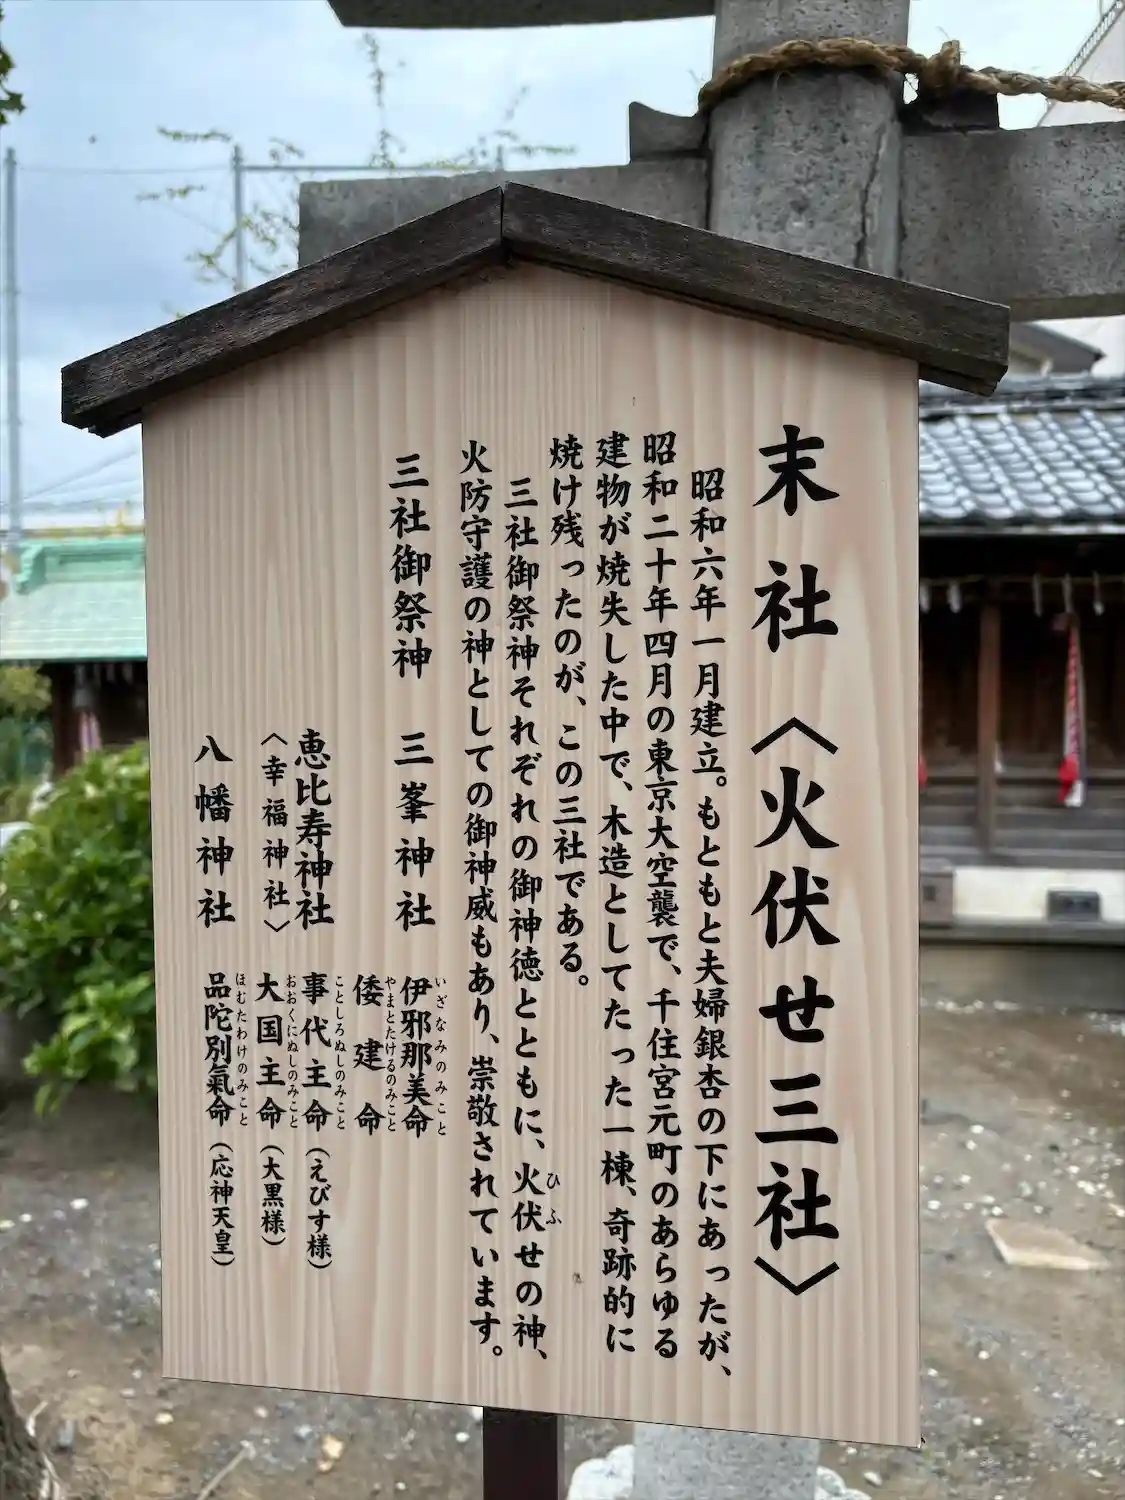 末社〈火伏せ三社〉
昭和六年一月建立。もともと夫婦銀杏の下にあったが、
昭和二十年四月の東京大空襲で、千住宮元町のあらゆる
建物が焼失した中で、木造としてたった一棟、奇跡的に
焼け残ったのが、この三社である。
三社御祭神それぞれの御神徳とともに、火伏せの神、
ひふ
火防守護の神としての御神威もあり、崇敬されています。
三社御祭神 三峯神社 伊邪那美命
いざなみのみこと
倭建命
やまとたけるのみこと
恵比寿神社 事代主命(えびす様)
ことしろぬしのみこと
〈幸福神社〉 大国主命(大黒様)
おおくにぬしのみこと
八幡神社 品陀別氣命(応神天皇)
ほむたわけのみこと